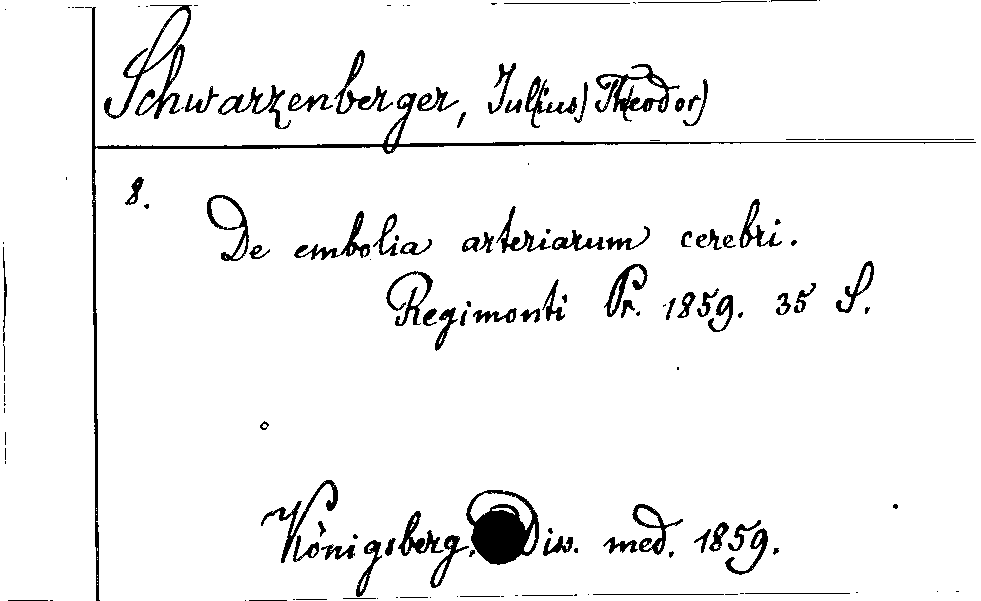 Schwarzenberger, Jul(ius) Th(eodor)
8.
De embolia arteriarum cerebri.
Regimonti Pr. 1859. 35 S.
Königsberg, Diss. med. 1859.